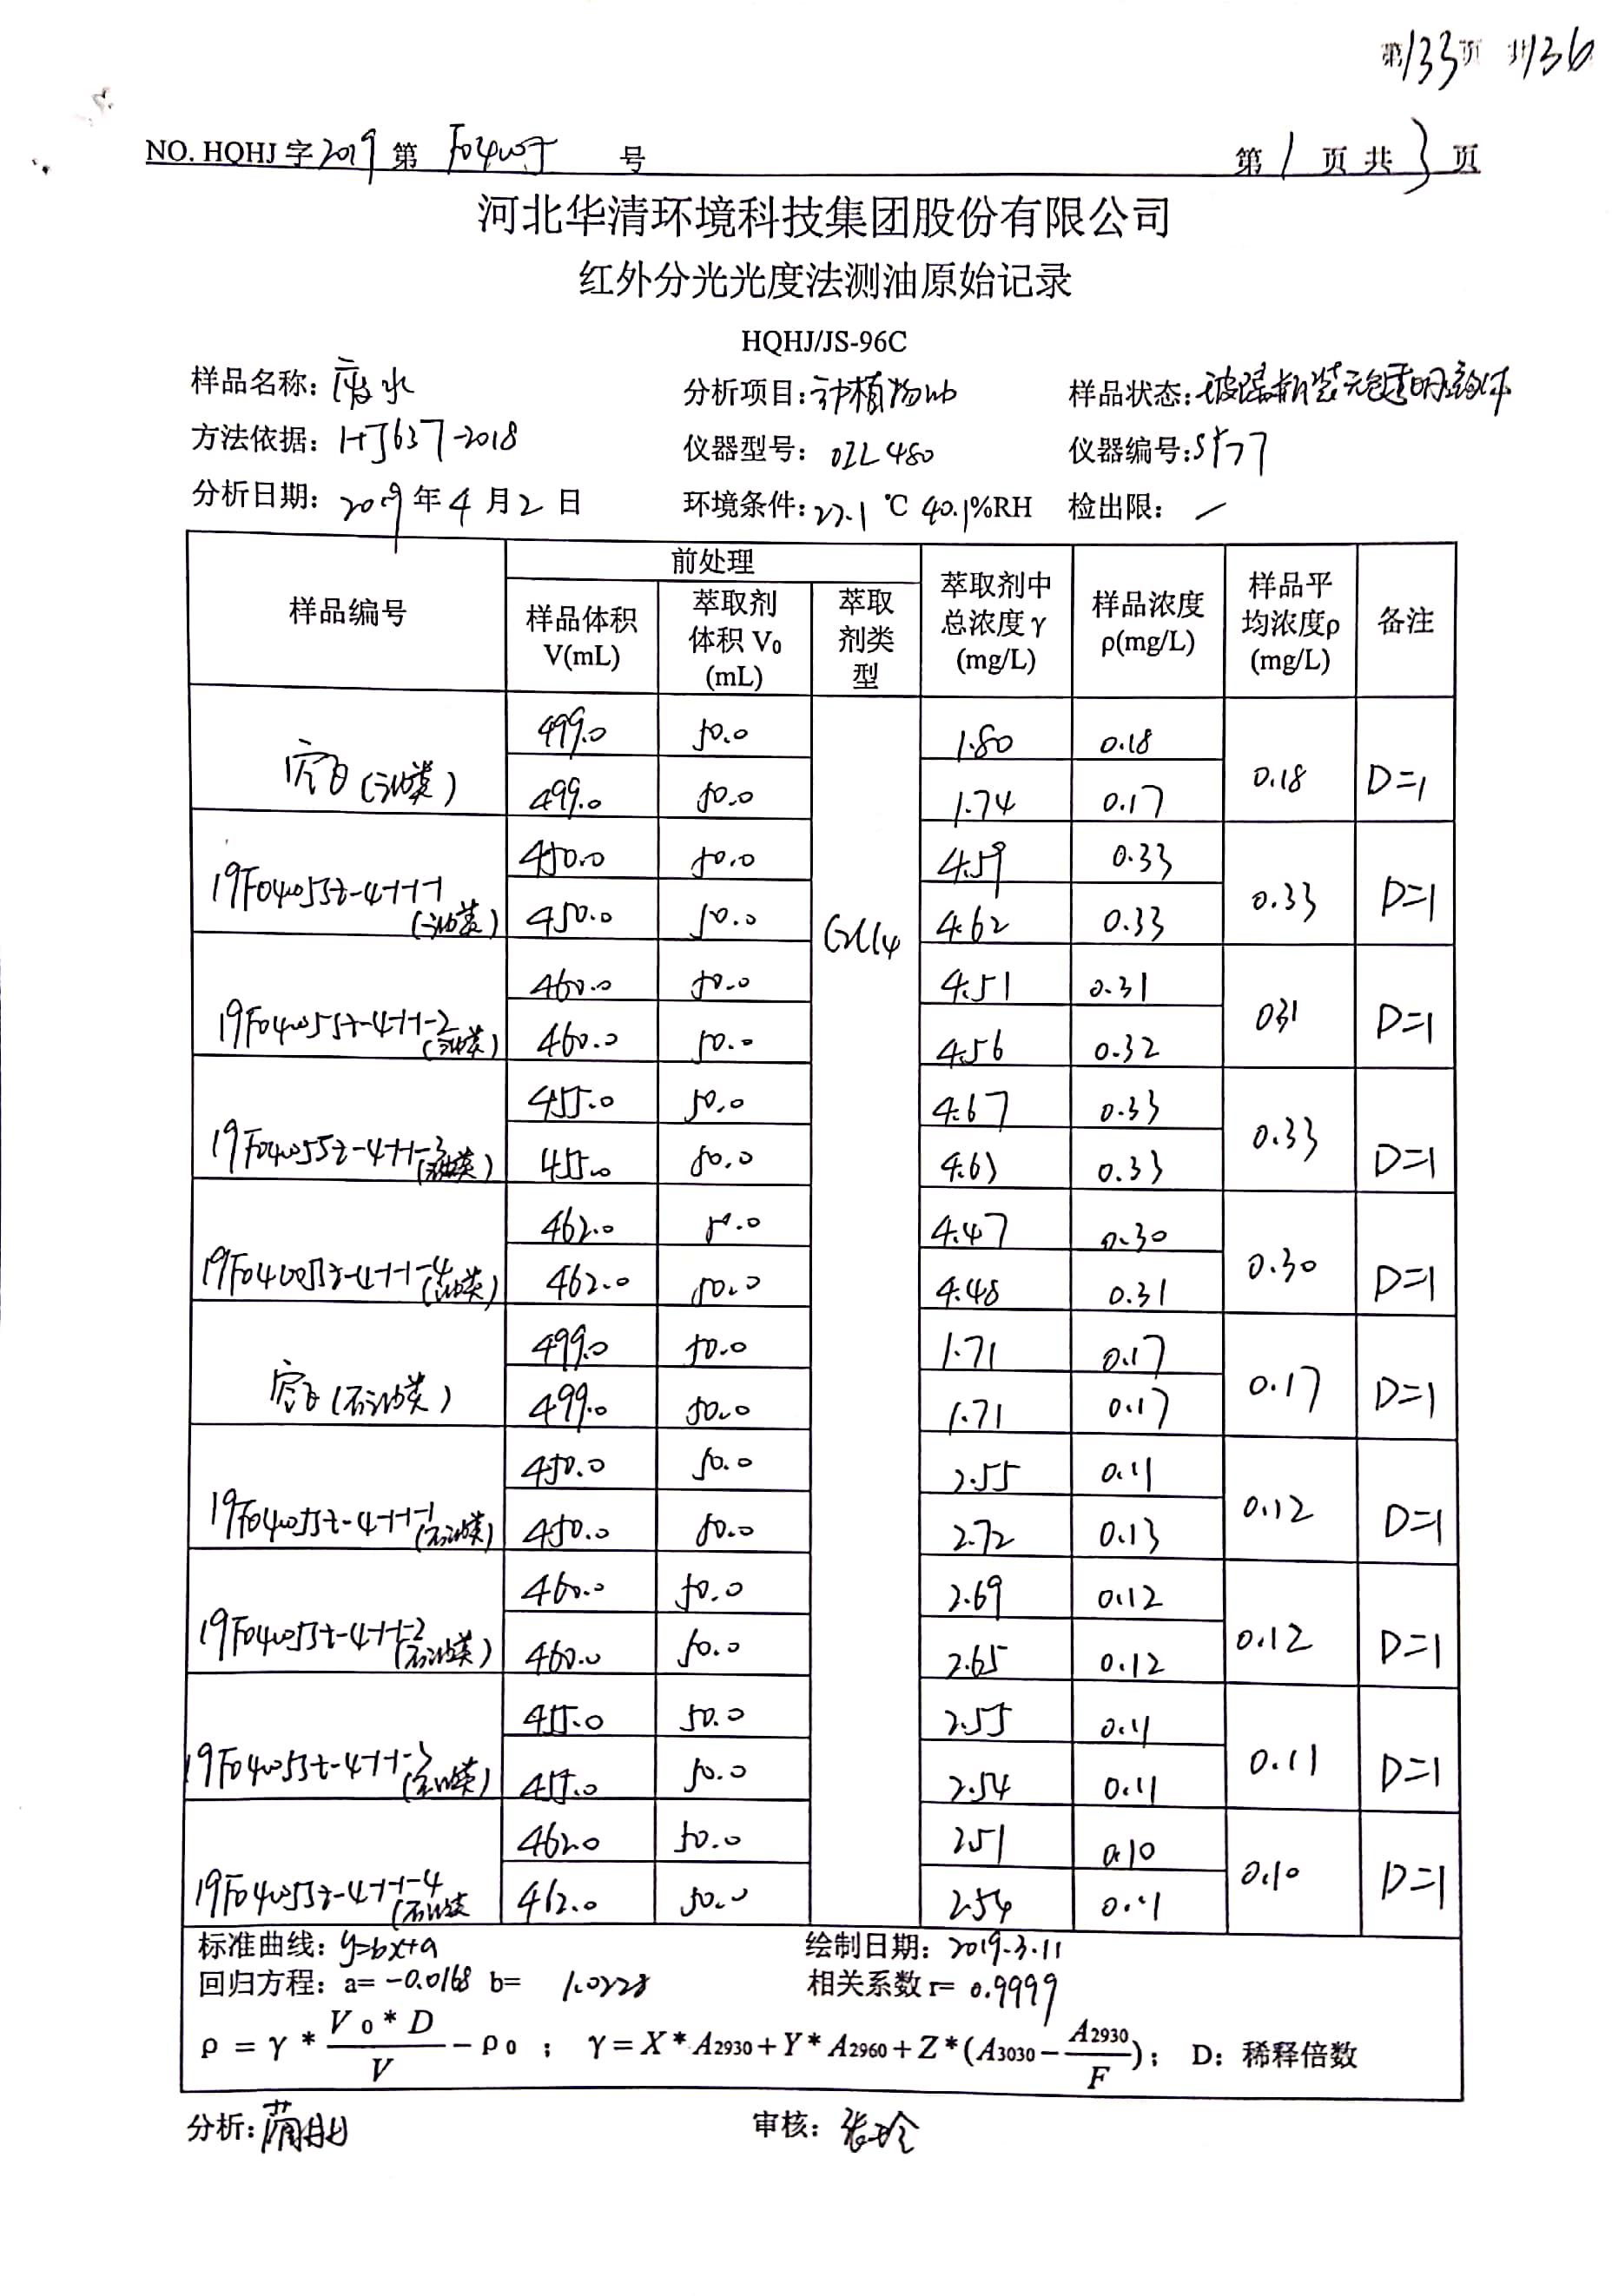 第133页 共136
NO. HQHJ 字2019 第 F04005 号 第 1 页 共 3 页
河北华清环境科技集团股份有限公司
红外分光光度法测油原始记录
HQHJ/JS-96C
样品名称：废水 分析项目：动植物油 样品状态：玻璃瓶装无色透明液体
方法依据：HJ637-2018 仪器型号：OIL480 仪器编号：
分析日期：2019年4月2日 环境条件：22.1℃ 40.1%RH 检出限：—
样品编号 前处理 萃取剂中总浓度γ(mg/L) 样品浓度ρ(mg/L) 样品平均浓度ρ(mg/L) 备注
样品体积V(mL) 萃取剂体积V₀(mL) 萃取剂类型
空白(油类) 499.0 50.0 1.80 0.18 0.18 D=1
499.0 50.0 1.74 0.17
19F04005Sz-4-1-1-1(油类) 450.0 50.0 4.59 0.33 0.33 D=1
450.0 50.0 C2Cl4 4.62 0.33
19F04005Sz-4-1-1-2(油类) 460.0 50.0 4.51 0.31 0.31 D=1
460.0 50.0 4.56 0.32
19F04005Sz-4-1-1-3(油类) 455.0 50.0 4.67 0.33 0.33 D=1
455.0 50.0 4.63 0.33
19F04005Sz-4-1-1-4(油类) 462.0 50.0 4.47 0.30 0.30 D=1
462.0 50.0 4.48 0.31
空白(石油类) 499.0 50.0 1.71 0.17 0.17 D=1
499.0 50.0 1.71 0.17
19F04005Sz-4-1-1-1(石油类) 450.0 50.0 2.55 0.11 0.12 D=1
450.0 50.0 2.72 0.13
19F04005Sz-4-1-1-2(石油类) 460.0 50.0 2.69 0.12 0.12 D=1
460.0 50.0 2.65 0.12
19F04005Sz-4-1-1-3(石油类) 455.0 50.0 2.55 0.11 0.11 D=1
455.0 50.0 2.54 0.11
19F04005Sz-4-1-1-4(石油类 462.0 50.0 2.51 0.10 0.10 D=1
462.0 50.0 2.54 0.11
标准曲线：y=bx+a 绘制日期：2019.3.11
回归方程：a=-0.0168 b= 1.0228 相关系数 r= 0.9999
ρ = γ * V₀*D / V - ρ₀ ； γ = X*A2930 + Y*A2960 + Z*(A3030 - A2930 / F)； D：稀释倍数
分析： 审核：张玲